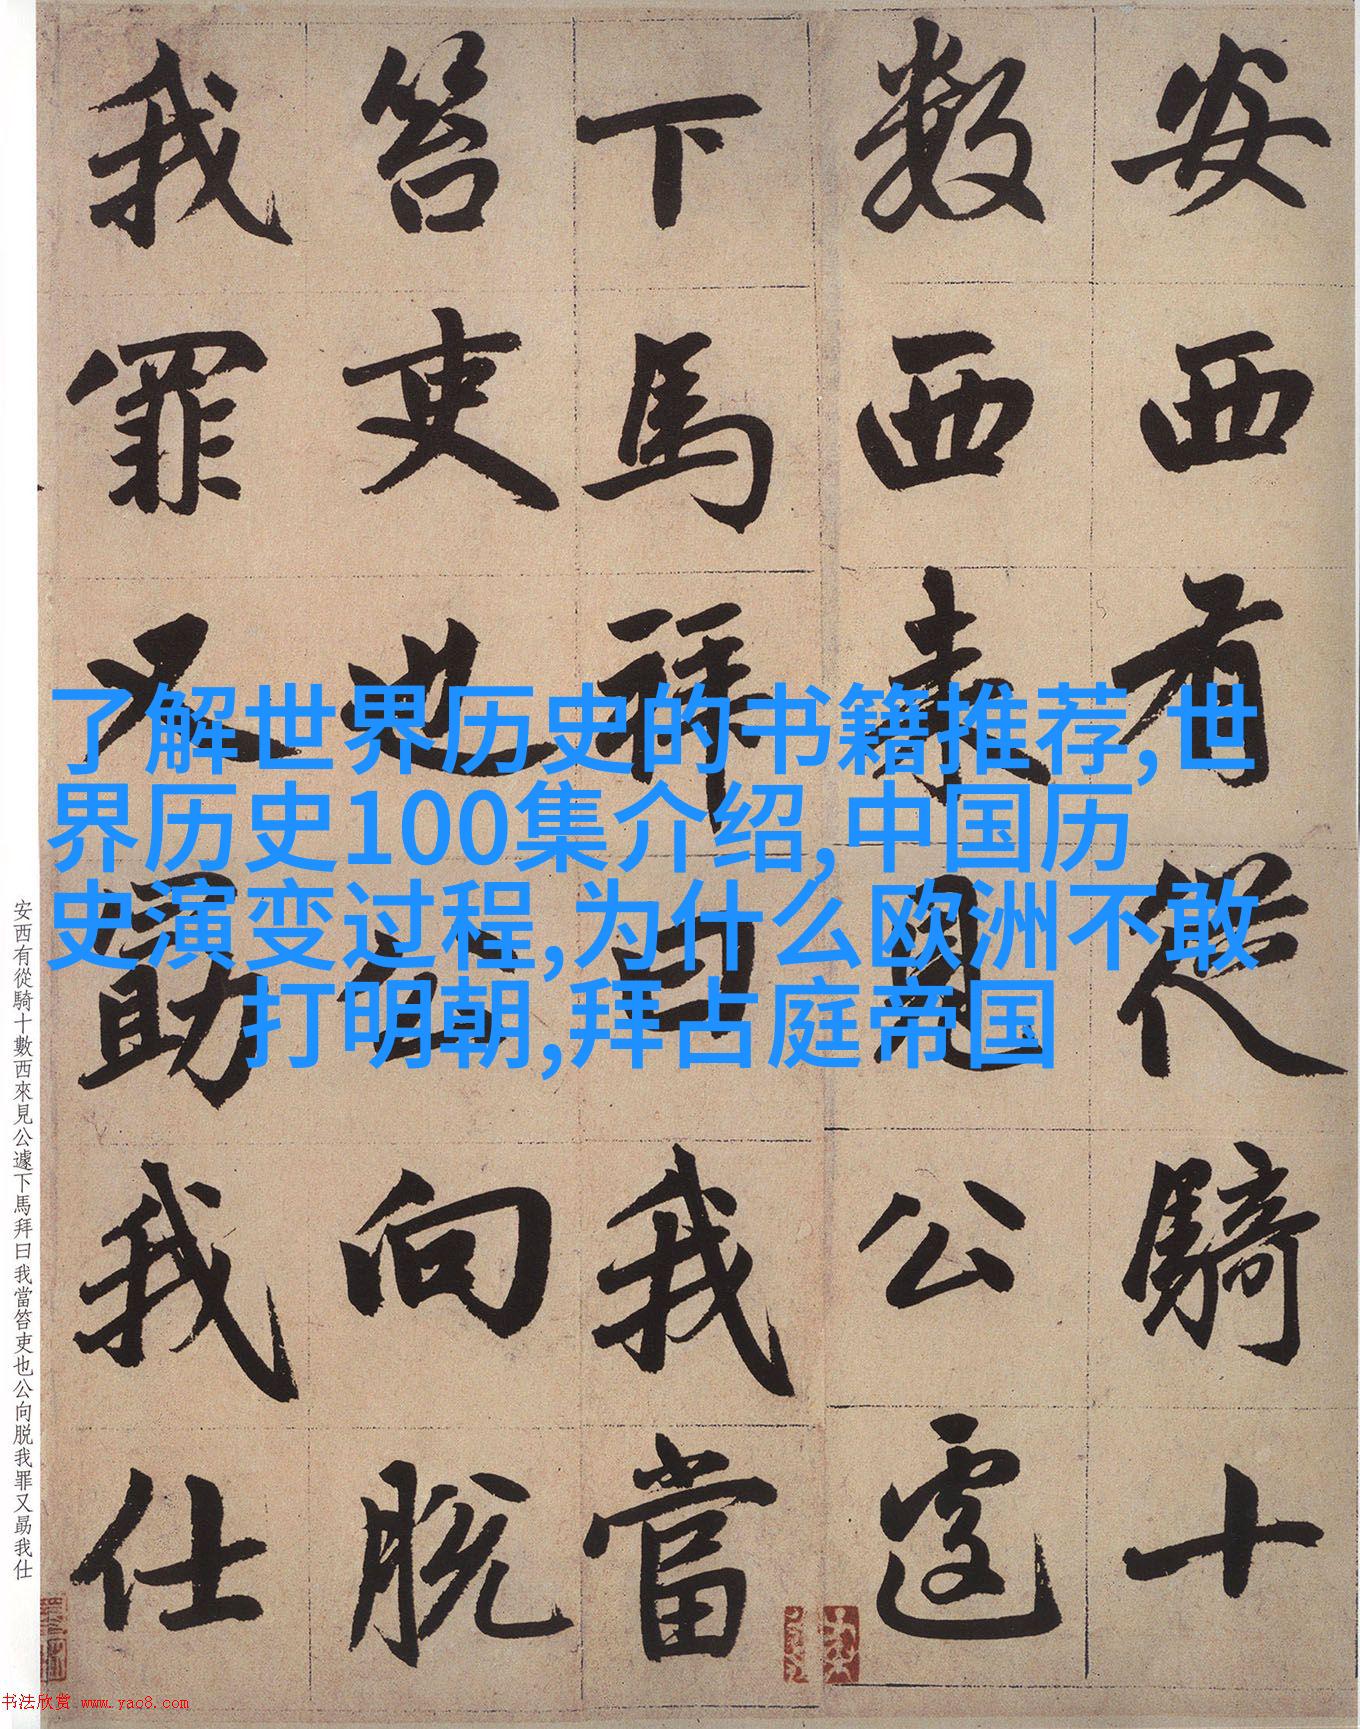 安西有從騎十
數西來見公遽
下馬拜曰我當
笞吏也公向脱
我罪又勗我仕
了解世界历史的书籍推荐,世
界历史100集介绍,中国历
史演变过程,为什么欧洲不敢
打明朝,拜占庭帝国
安西有從騎十數西來見公遽下馬拜曰我當笞吏也公向脱我罪又勗我仕
书法欣赏 www.yac8.com